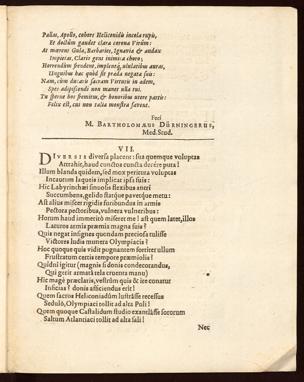 Pallas, Apollo, cohors Heliconidum incela rupis,
Et doctûm gaudet clara corona Virûm:
At mœrent Gula, Barbaries, Ignavia & audax
Impietas, Clariis gens inimica choro;
Horrendùm frendent, implentque ululatibus auras,
Unguibus hac quòd sit præda negata suis:
Nam, cùm ducaris sacram Virtutis in adem,
Spes adipiscendi non manet ulla tui.
Tu sperne hos fremitus, & honoribus utere partis:
Felix est, cui non talia monstra favent.
Feci
M. BARTHOLOMÆUS DÜRNINGERUS,
Med. Stud.
VII.
DIVERSIS diversa placent: sua quemque voluptas
Attrahit, haud cunctos cuncta decere puta!
Illum blanda quidem, sed mox peritura voluptas
Incautum laqueis implicat ipsa suis:
Hic Labyrinthæi sinuosis flexibus antri
Succumbens, gelido statque pavetque metu:
Ast alius miscet rigidis furibundus in armis
Pectora pectoribus, vulnera vulneribus:
Horum haud immeritò miseret me! ast quem latet, illos
Luxuros armis præmia magna suis?
Quis negat insignes quondam preciosa tulisse
Victores ludis munera Olympiacis?
Hoc quoque quis vidit pugnantem fortiter ullum
Frustratum certis tempore præmiolis?
Quidni igitur (magnis si donis condecorandus,
Qui gerit armatâ tela cruenta manu)
Hic magè præclaris, vestrûm quis & ire conatur
Inficias? donis afficiendus erit!
Quem sacros Heliconiadum lustrâsse recessus
Sedulò, Olympiaci tollit ad alta Poli!
Quem quoque Castalidum studio exantlâsse sororum
Saltum Atlantiaci tollit ad alta sali!
Nec